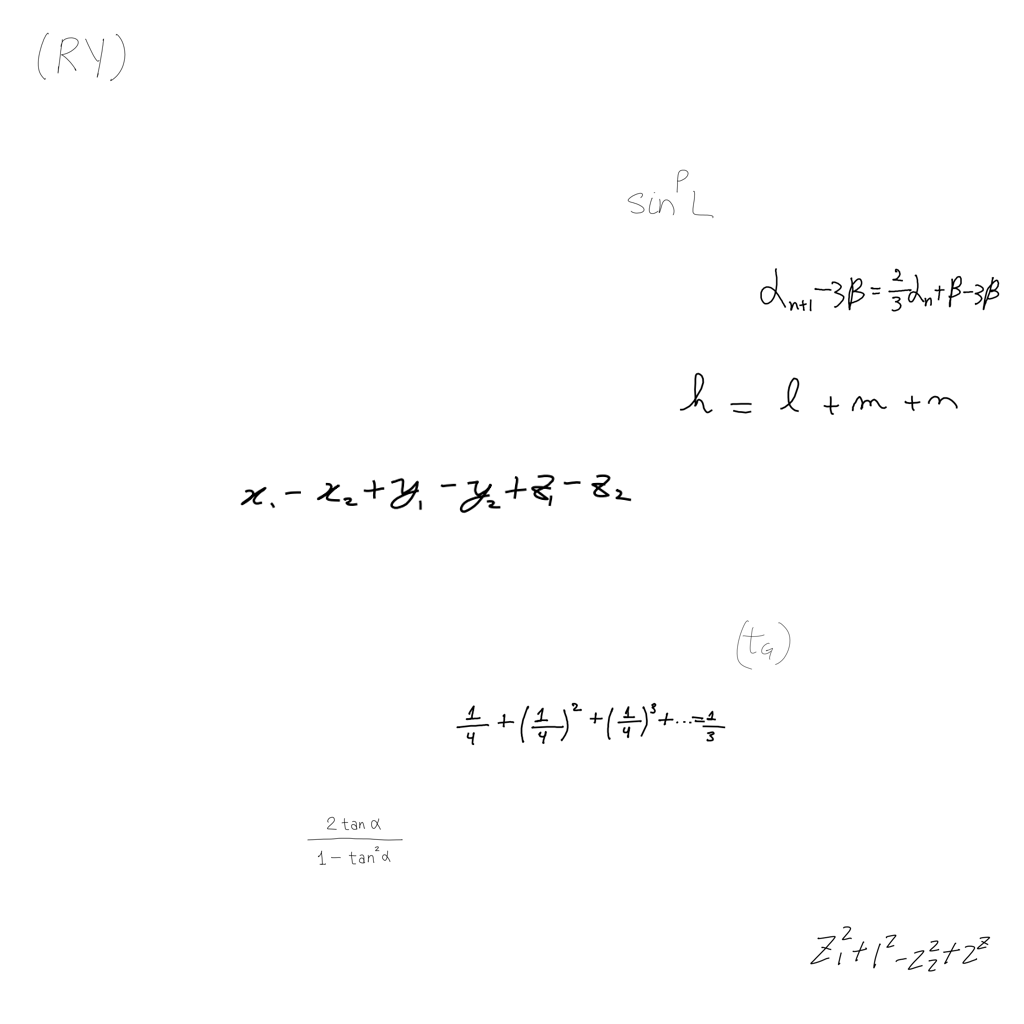 (RY)
sin^P L
α_{n+1} - 3β = \frac{2}{3} α_n + β - 3β
h = l + m + n
x_1 - x_2 + y_1 - y_2 + z_1 - z_2
(t_G)
\frac{1}{4} + (\frac{1}{4})^2 + (\frac{1}{4})^3 + ... = \frac{1}{3}
\frac{2 tan α}{1 - tan^2 α}
z_1^2 + 1^2 - z_2^2 + 2^z